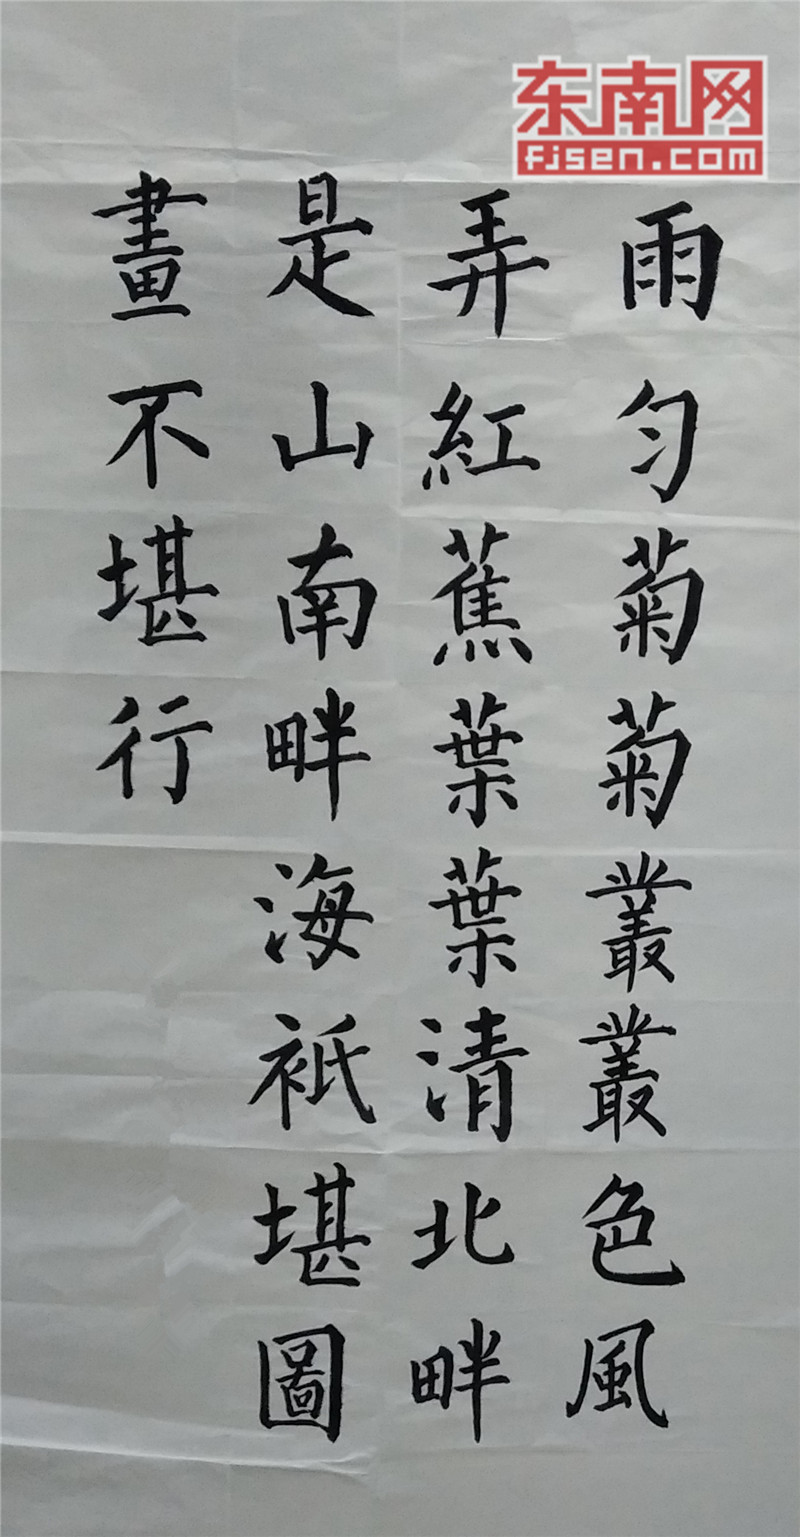 东南网
fjsen.com
雨匀菊菊叢叢色風
弄紅蕉葉葉清北畔
是山南畔海祗堪圖
畫不堪行